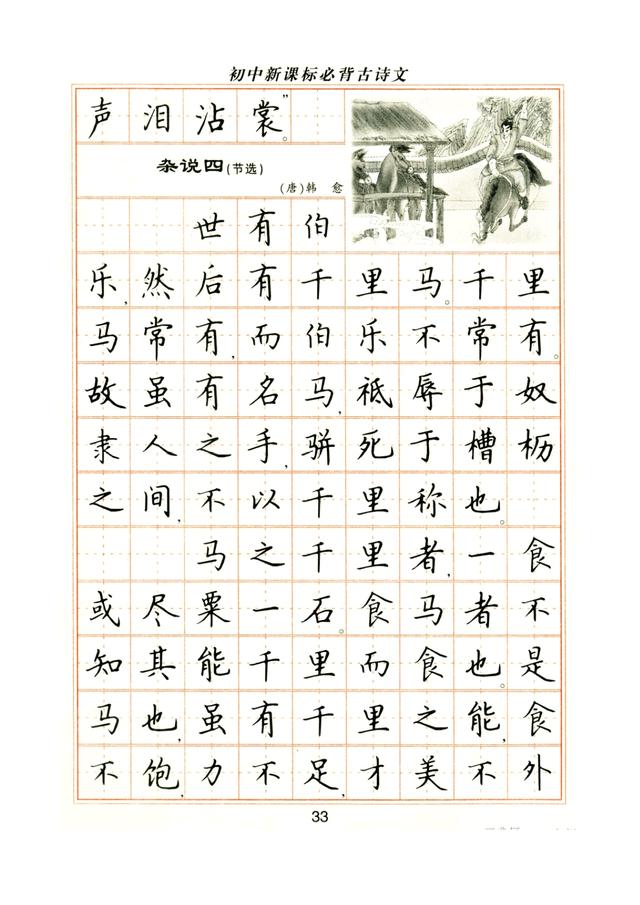 初中新课标必背古诗文
声泪沾裳。”
杂说四(节选)
(唐)韩 愈
世有伯
乐,然后有千里马。千里
马常有,而伯乐不常有。
故虽有名马,祗辱于奴
隶人之手,骈死于槽枥
之间,不以千里称也。
马之千里者,一食
或尽粟一石。食马者不
知其能千里而食也。是
马也,虽有千里之能,食
不饱,力不足,才美不外
33